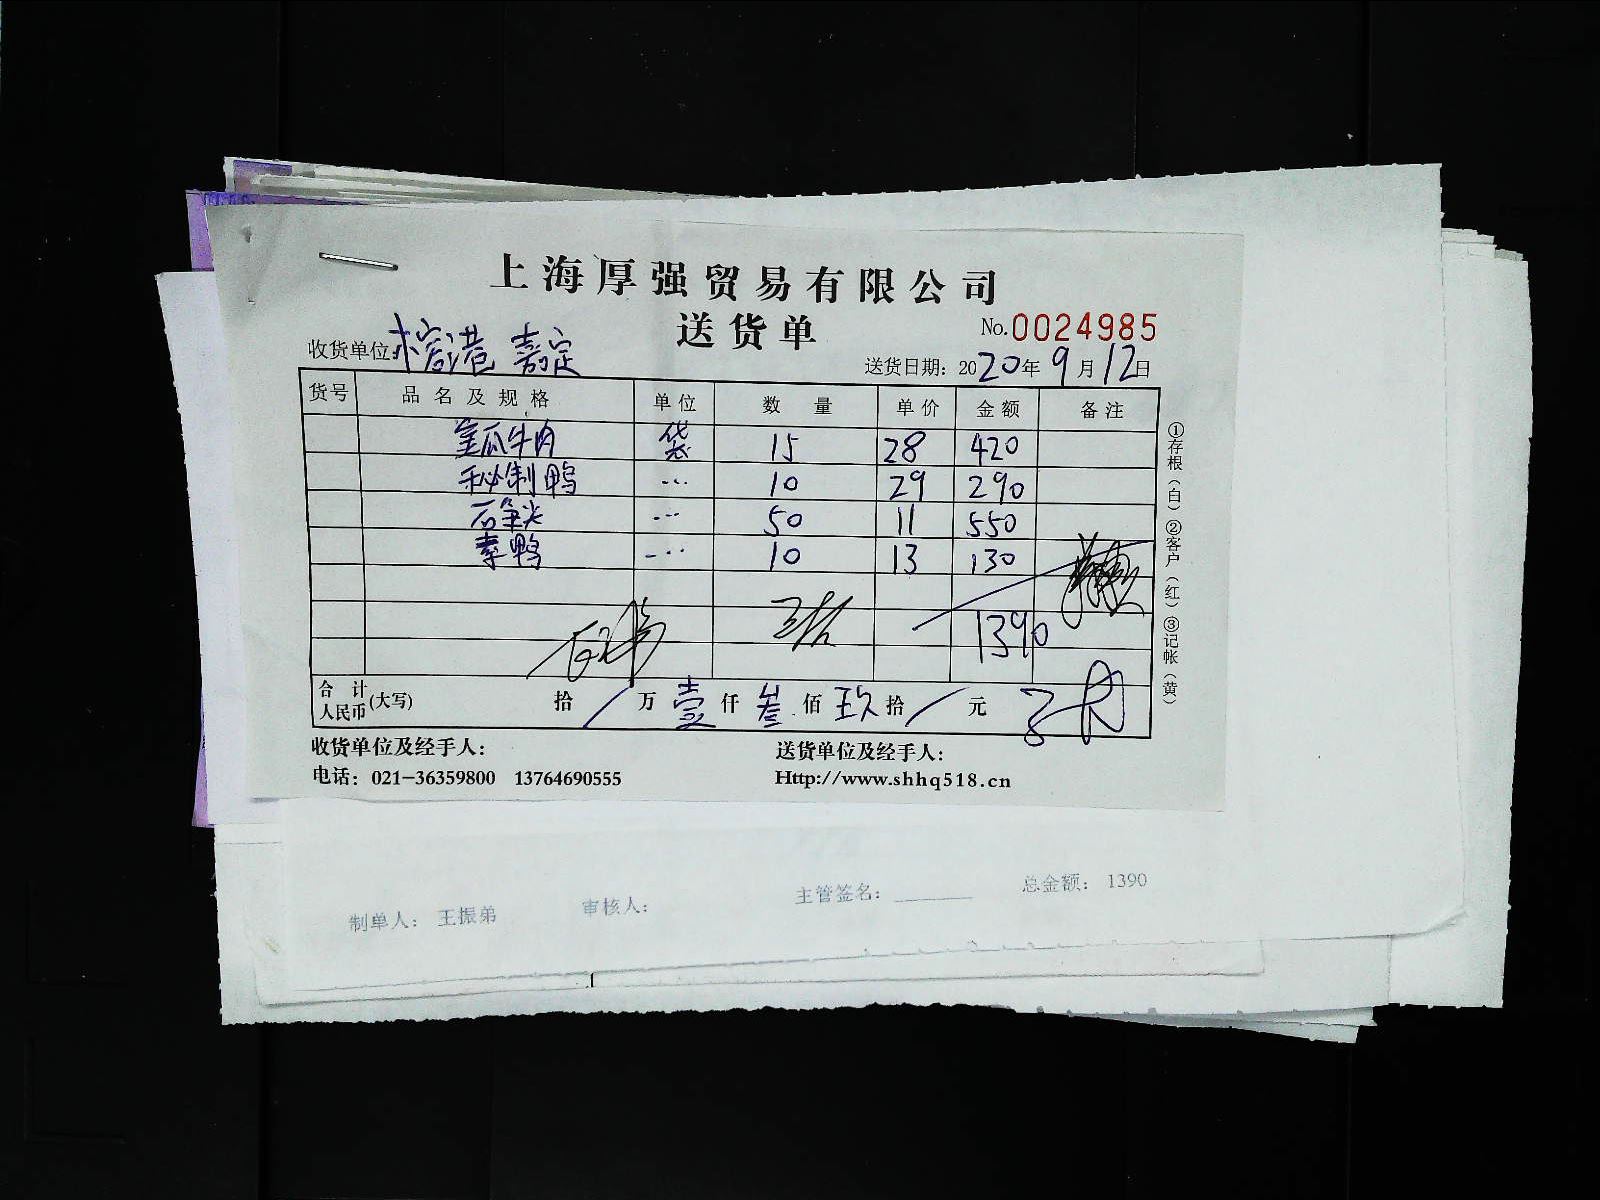 上海厚强贸易有限公司
送货单
No.0024985
收货单位: 榕港 嘉定
送货日期: 2020年9月12日
货号 品名及规格 单位 数量 单价 金额 备注
金瓜牛肉 袋 15 28 420
秘制鸭 ... 10 29 290
石笋尖 ... 50 11 550
素鸭 ... 10 13 130
1390
合计人民币(大写) 拾 / 万 壹 仟 叁 佰 玖 拾 / 元
收货单位及经手人:
送货单位及经手人:
电话: 021-36359800 13764690555
Http://www.shhq518.cn
①存根(白)②客户(红)③记帐(黄)
制单人: 王振弟 审核人: 主管签名: 总金额: 1390